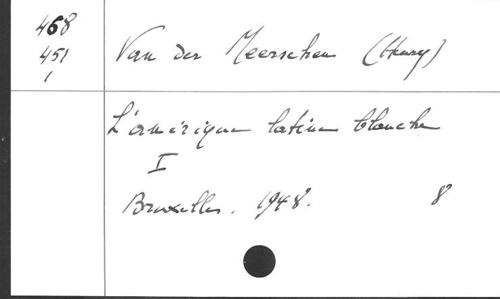 468
451
1
Van der Meerschen (Henry)
L'amérique latine blanche
I
Bruxelles. 1948. 8